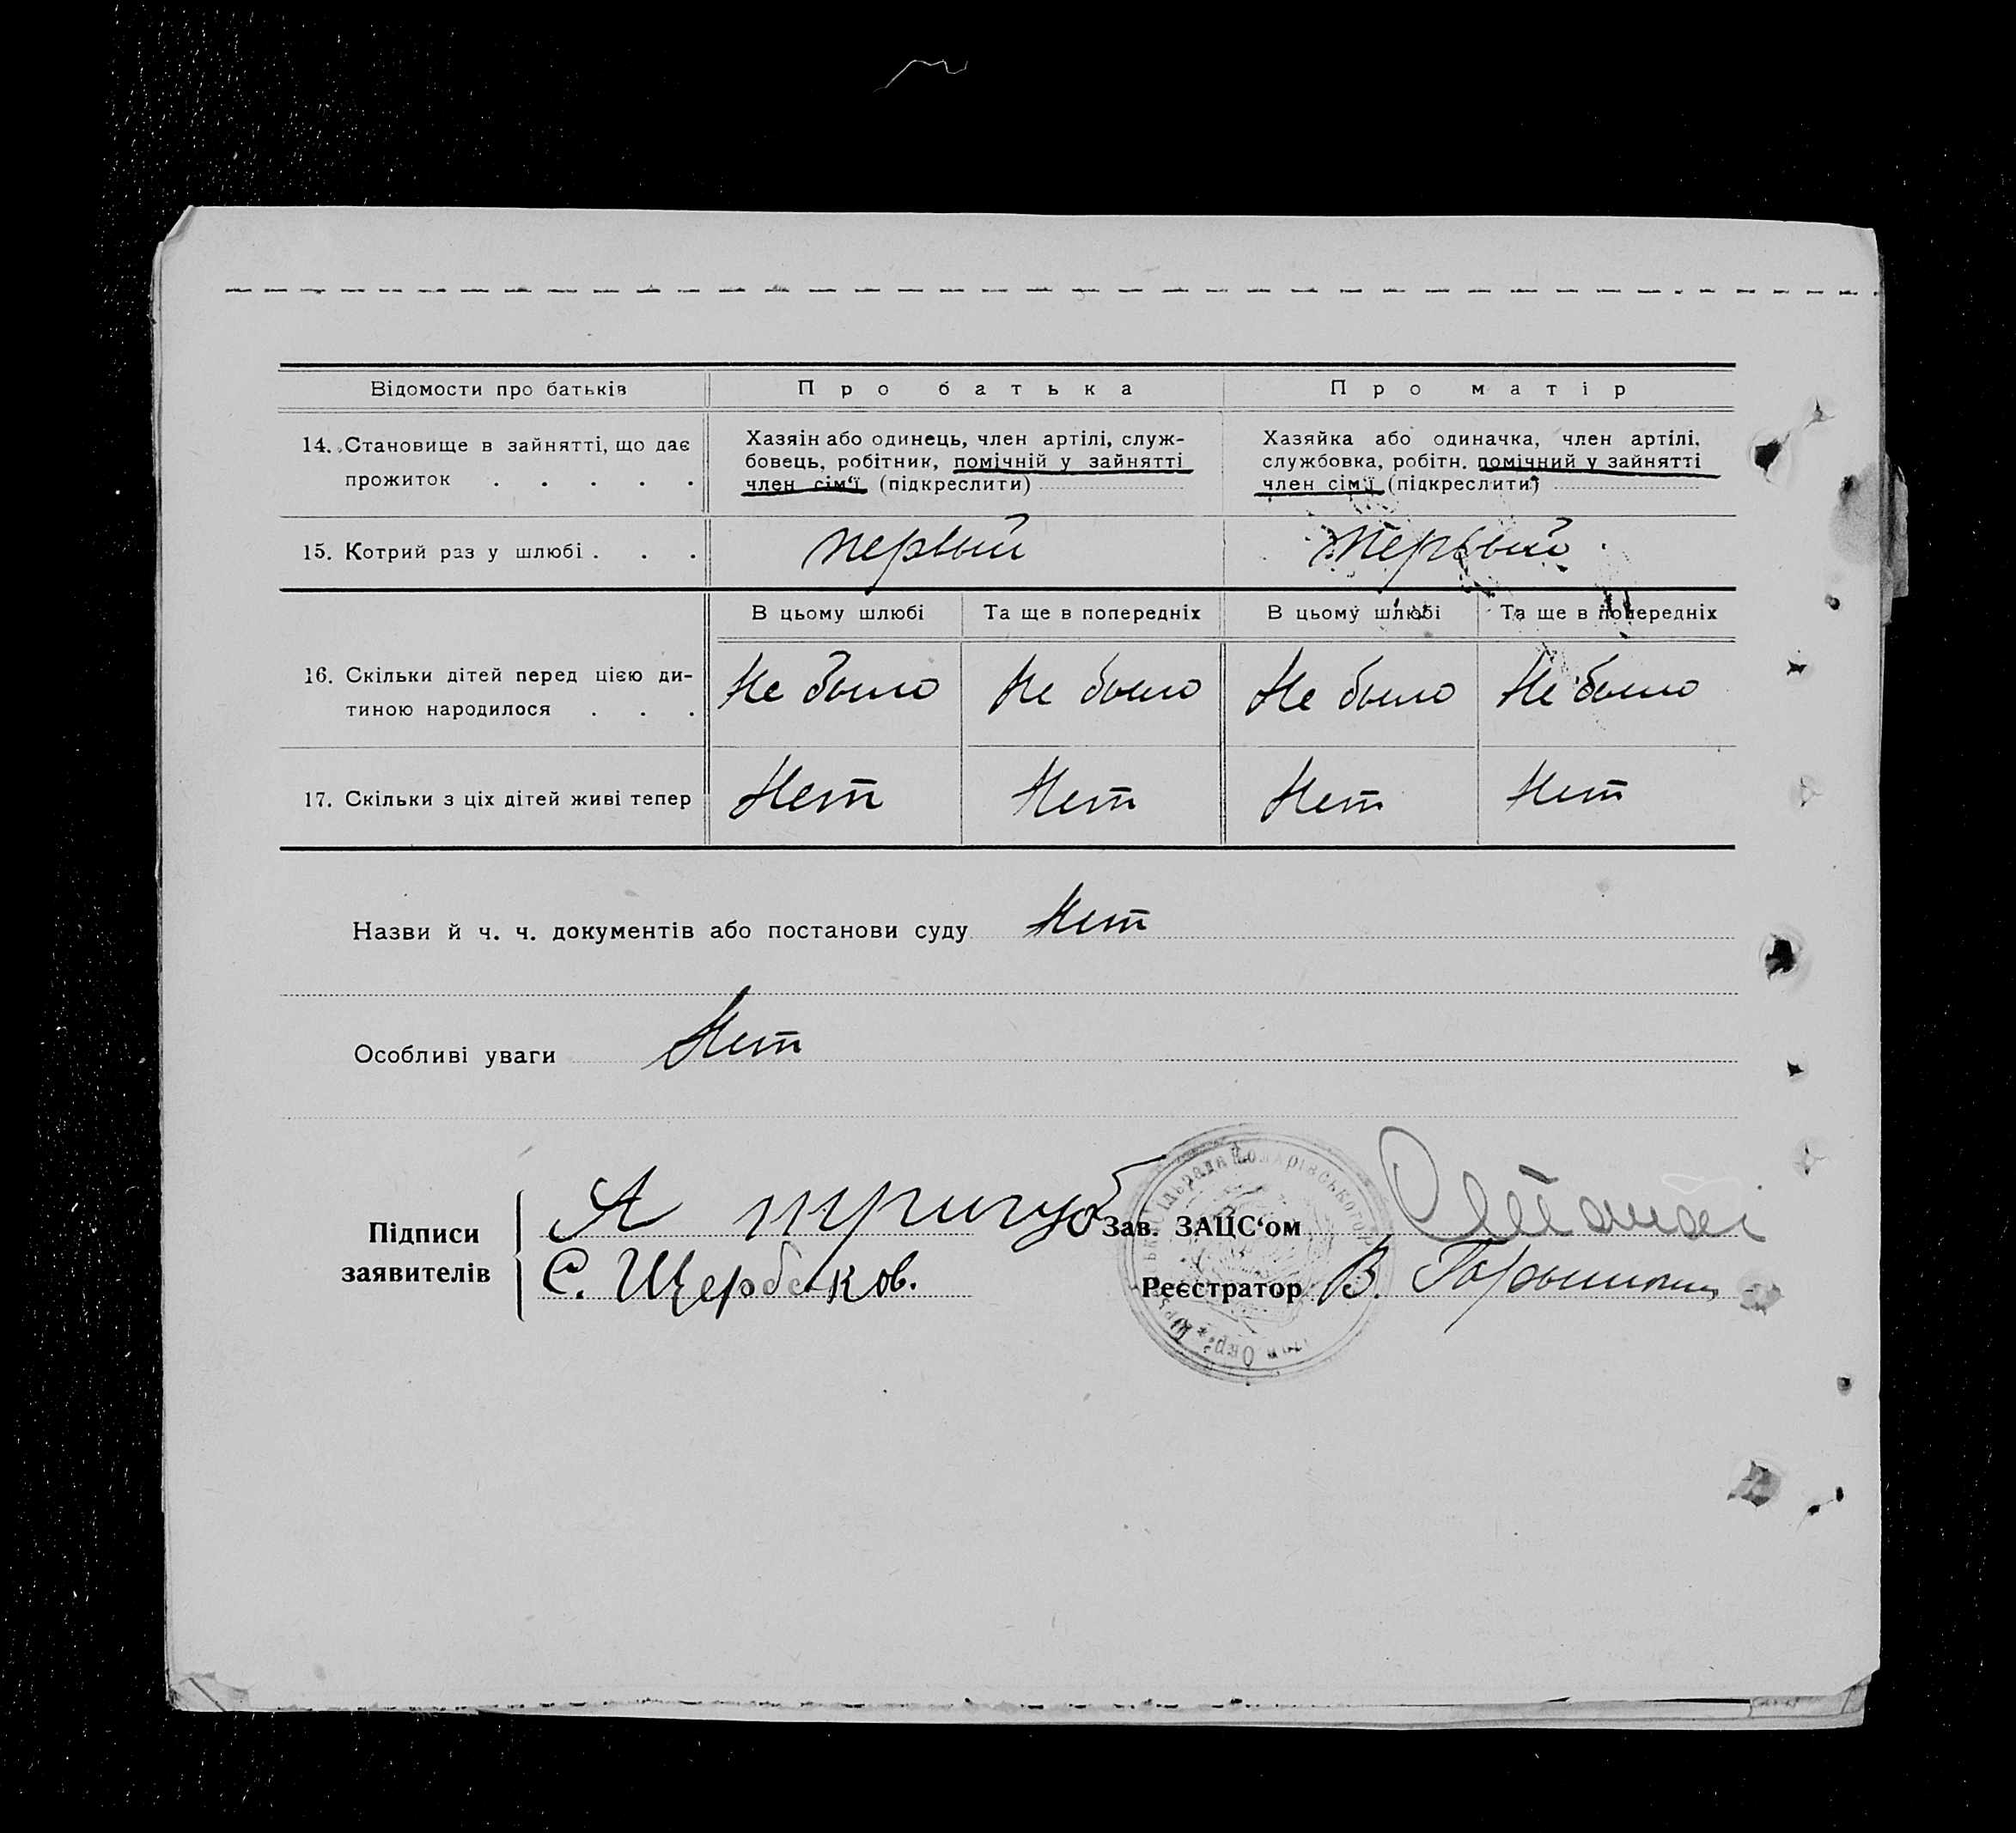 Відомости про батьків
Про батька
Про матір
14. Становище в зайнятті, що дає
прожиток . . . . .
Хазяїн або одинець, член артілі, служ-
бовець, робітник, помічній у зайнятті
член сім'ї (підкреслити)
Хазяйка або одиначка, член артілі,
службовка, робітн. помічний у зайнятті
член сім'ї (підкреслити)
15. Котрий раз у шлюбі . . .
первый
первый
В цьому шлюбі
Та ще в попередніх
В цьому шлюбі
Та ще в попередніх
16. Скільки дітей перед цією ди-
тиною народилося . . .
Не было
Не было
Не было
Не было
17. Скільки з ціх дітей живі тепер
Нет
Нет
Нет
Нет
Назви й ч. ч. документів або постанови суду Нет
Особливі уваги Нет
Підписи
заявителів
А тригуб
С. Щербаков.
Зав. ЗАЦС'ом
Реєстратор В.